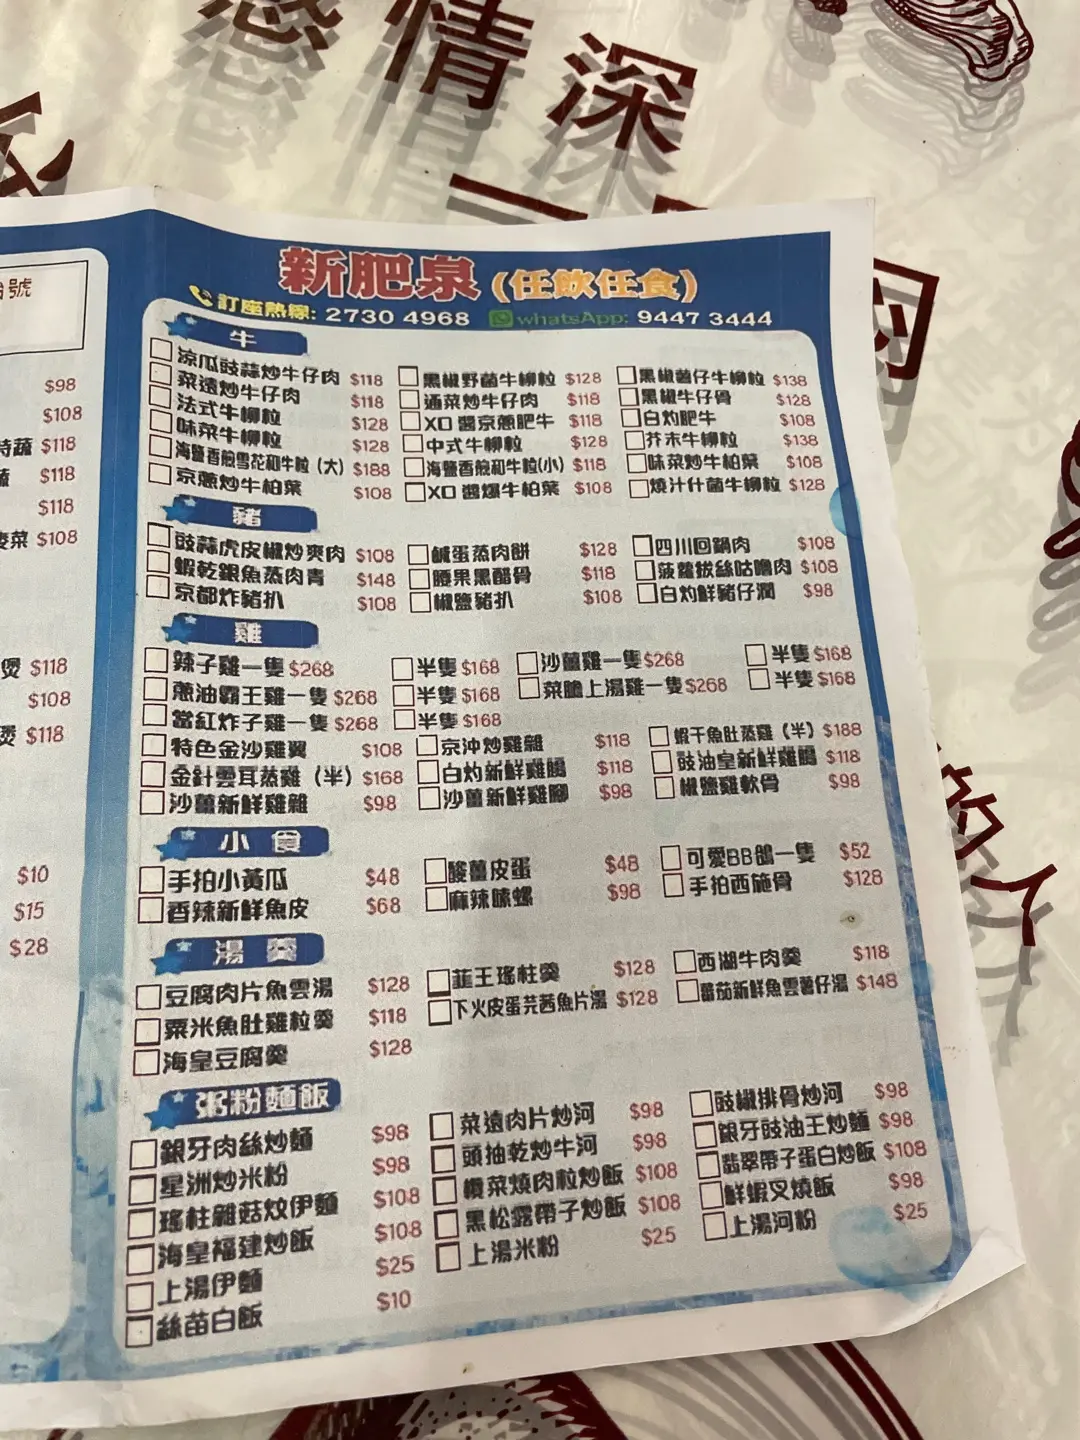 情深
台號
$98
$108
時蔬 $118
蔬 $118
$118
菜 $108
煲 $118
$108
煲 $118
$10
$15
$28
新肥泉 (任飲任食)
訂座熱線: 2730 4968 whatsApp: 9447 3444
牛
涼瓜豉蒜炒牛仔肉 $118 黑椒野菌牛柳粒 $128 黑椒薯仔牛柳粒 $138
菜遠炒牛仔肉 $118 通菜炒牛仔肉 $118 黑椒牛仔骨 $128
法式牛柳粒 $128 XO醬京蔥肥牛 $118 白灼肥牛 $108
味菜牛柳粒 $128 中式牛柳粒 $128 芥末牛柳粒 $138
海鹽香煎雪花和牛粒 (大) $188 海鹽香煎和牛粒(小) $118 味菜炒牛柏葉 $108
京蔥炒牛柏葉 $108 XO醬爆牛柏葉 $108 燒汁什菌牛柳粒 $128
豬
豉蒜虎皮椒炒爽肉 $108 鹹蛋蒸肉餅 $128 四川回鍋肉 $108
蝦乾銀魚蒸肉青 $148 腰果黑醋骨 $118 菠蘿拔絲咕嚕肉 $108
京都炸豬扒 $108 椒鹽豬扒 $108 白灼鮮豬仔潤 $98
雞
辣子雞一隻 $268 半隻 $168 沙薑雞一隻 $268 半隻 $168
蔥油霸王雞一隻 $268 半隻 $168 菜膽上湯雞一隻 $268 半隻 $168
當紅炸子雞一隻 $268 半隻 $168
特色金沙雞翼 $108 京沖炒雞雜 $118 蝦干魚肚蒸雞 (半) $188
金針雲耳蒸雞 (半) $168 白灼新鮮雞腸 $118 豉油皇新鮮雞腸 $118
沙薑新鮮雞雜 $98 沙薑新鮮雞腳 $98 椒鹽雞軟骨 $98
小食
手拍小黃瓜 $48 酸薑皮蛋 $48 可愛BB鴿一隻 $52
香辣新鮮魚皮 $68 麻辣螺 $98 手拍西施骨 $128
湯羹
豆腐肉片魚雲湯 $128 韮王瑤柱羹 $128 西湖牛肉羹 $118
粟米魚肚雞粒羹 $118 下火皮蛋芫茜魚片湯 $128 蕃茄新鮮魚雲薯仔湯 $148
海皇豆腐羹 $128
粥粉麵飯
銀牙肉絲炒麵 $98 菜遠肉片炒河 $98 豉椒排骨炒河 $98
星洲炒米粉 $98 頭抽乾炒牛河 $98 銀牙豉油王炒麵 $98
瑤柱雜菇炆伊麵 $108 欖菜燒肉粒炒飯 $108 翡翠帶子蛋白炒飯 $108
海皇福建炒飯 $108 黑松露帶子炒飯 $108 鮮蝦叉燒飯 $98
上湯伊麵 $25 上湯米粉 $25 上湯河粉 $25
絲苗白飯 $10
的人